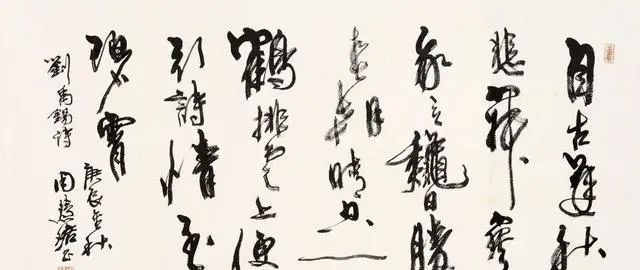 自古逢秋
悲寂寥
我言龝日勝
春朝晴空一
鶴排雲上便
引詩情到
碧霄
劉禹錫詩
庚辰金秋
周慧珺书